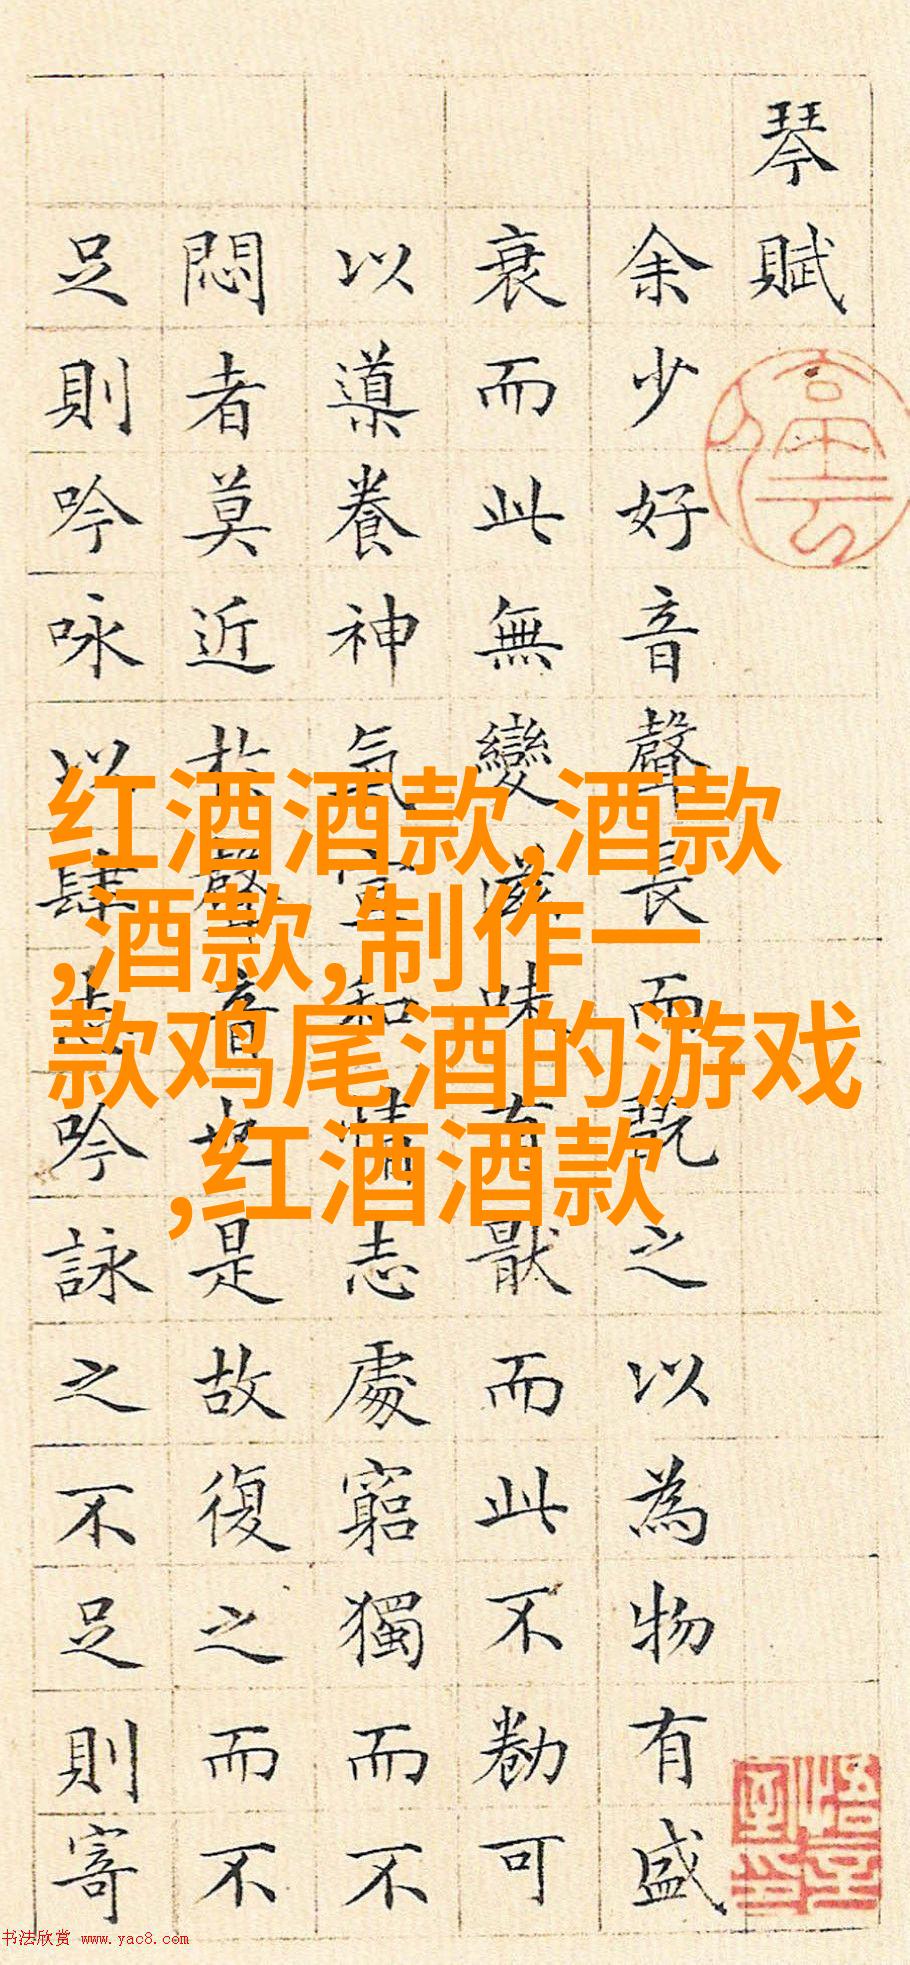 琴賦
余少好音聲長而翫之以為物有盛
衰而此無變滋味有猒而此不勌可
以導養神氣宣和情志處窮獨而不
悶者莫近於聲音也是故復之而不
足則吟咏以肆志吟詠之不足則寄
红酒酒款,酒款
,酒款,制作一
款鸡尾酒的游戏
,红酒酒款
书法欣赏 www.yac8.com